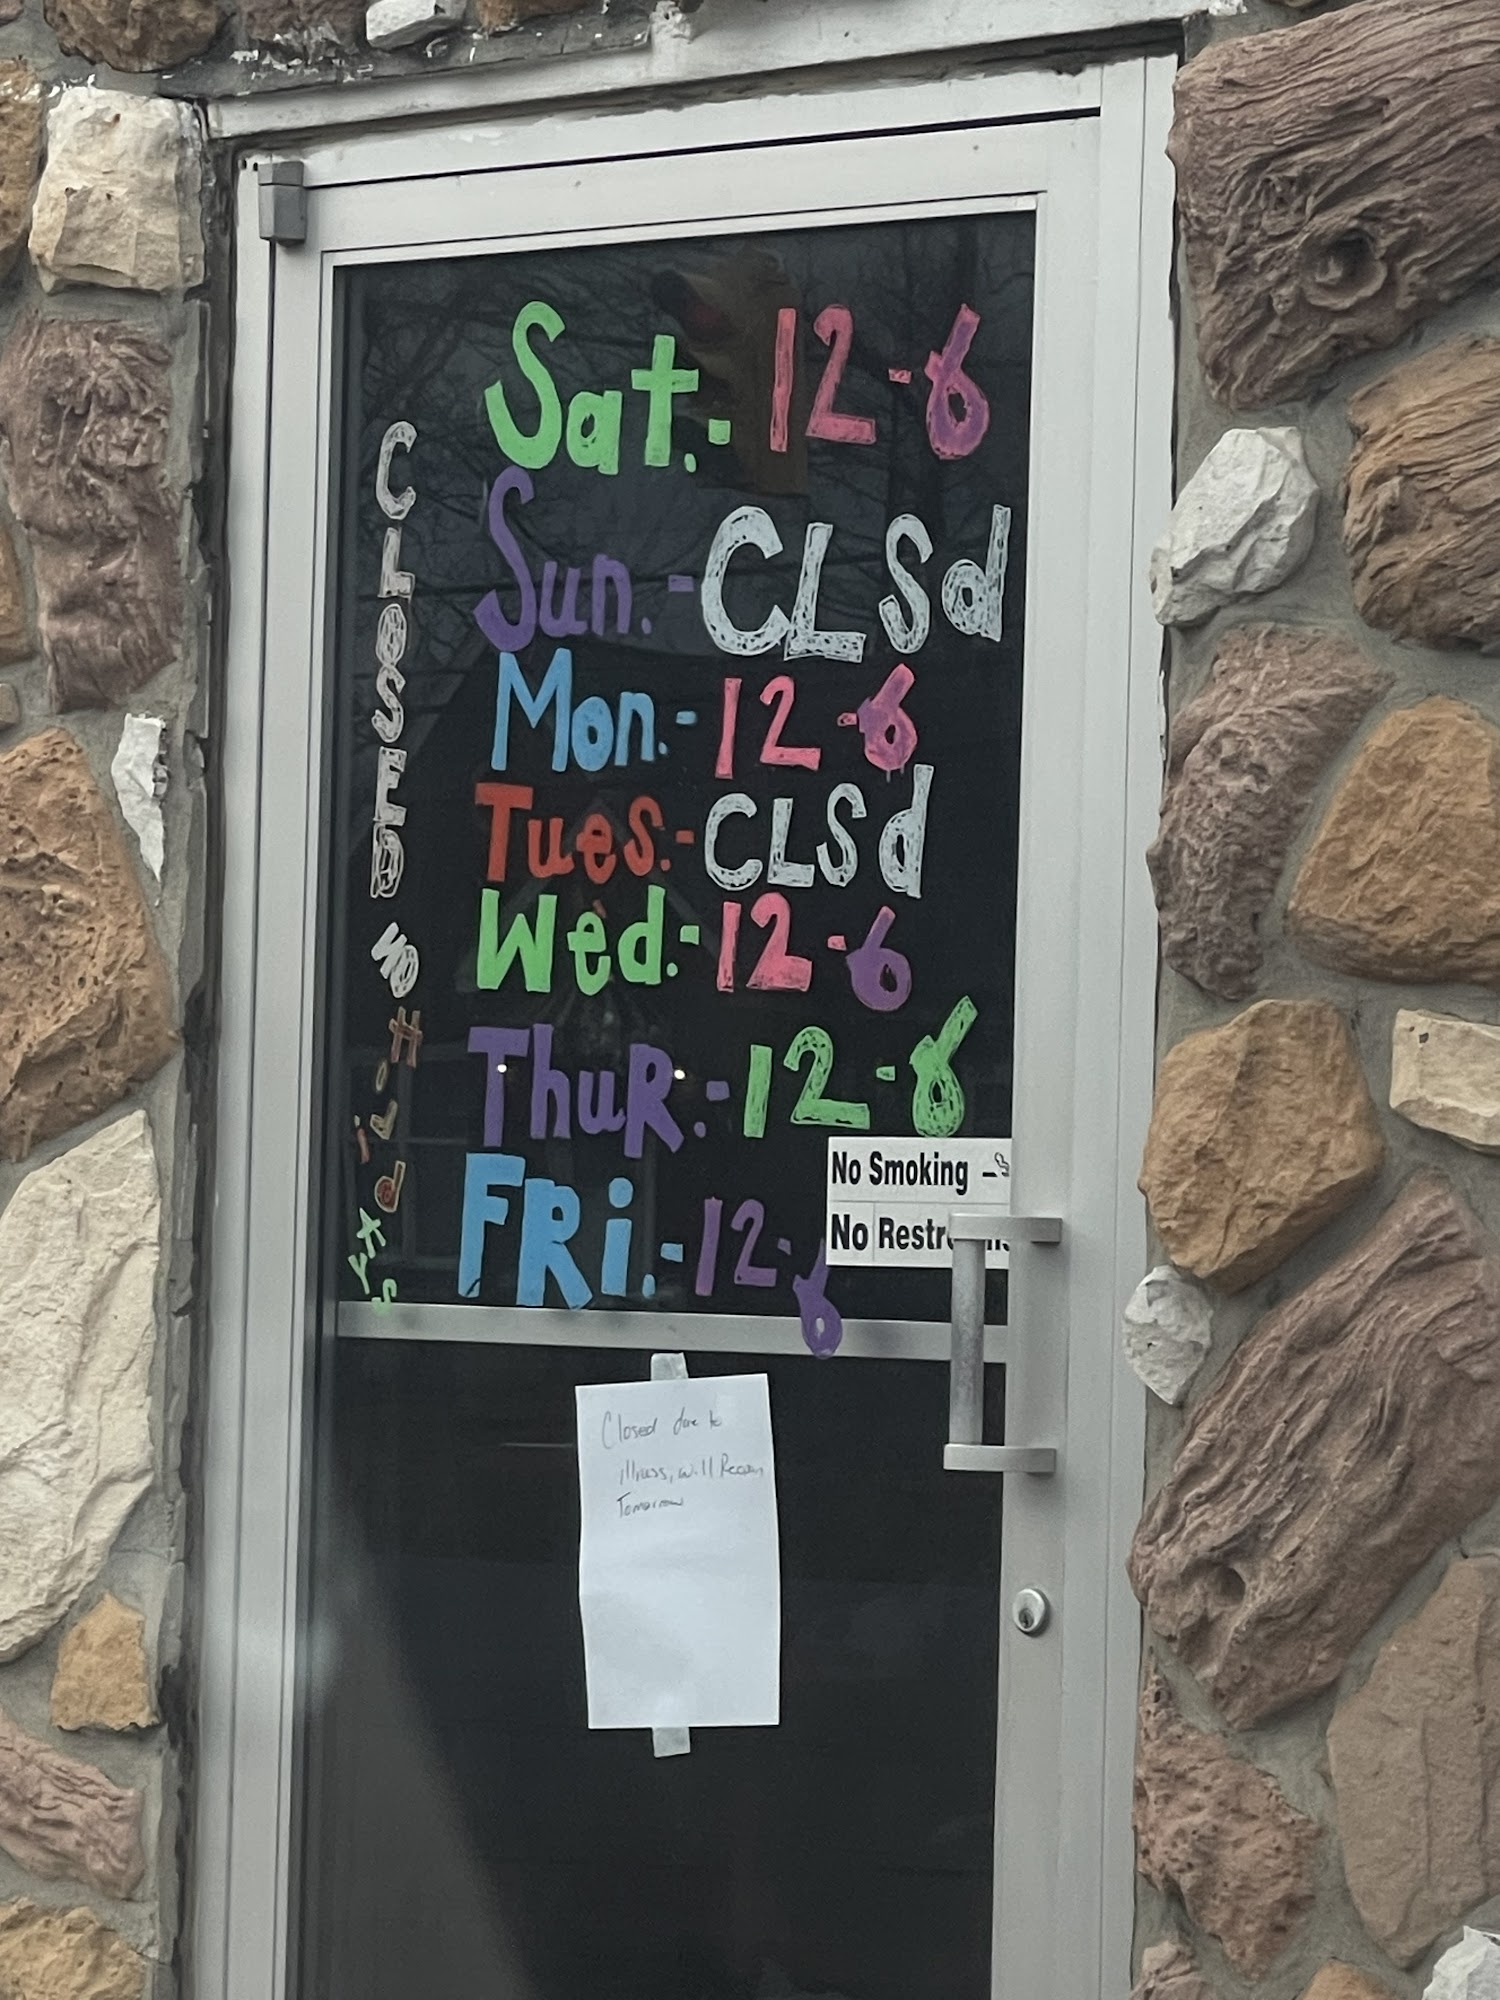 Sat.- 12-6
Sun.- CLSd
Mon.- 12-6
Tues.- CLSd
Wed.- 12-6
Thur.- 12-6
FRi.- 12-6
CLOSED ON HOLidAYS
No Smoking
No
Closed due to
illness, will Reopen
Tomorrow